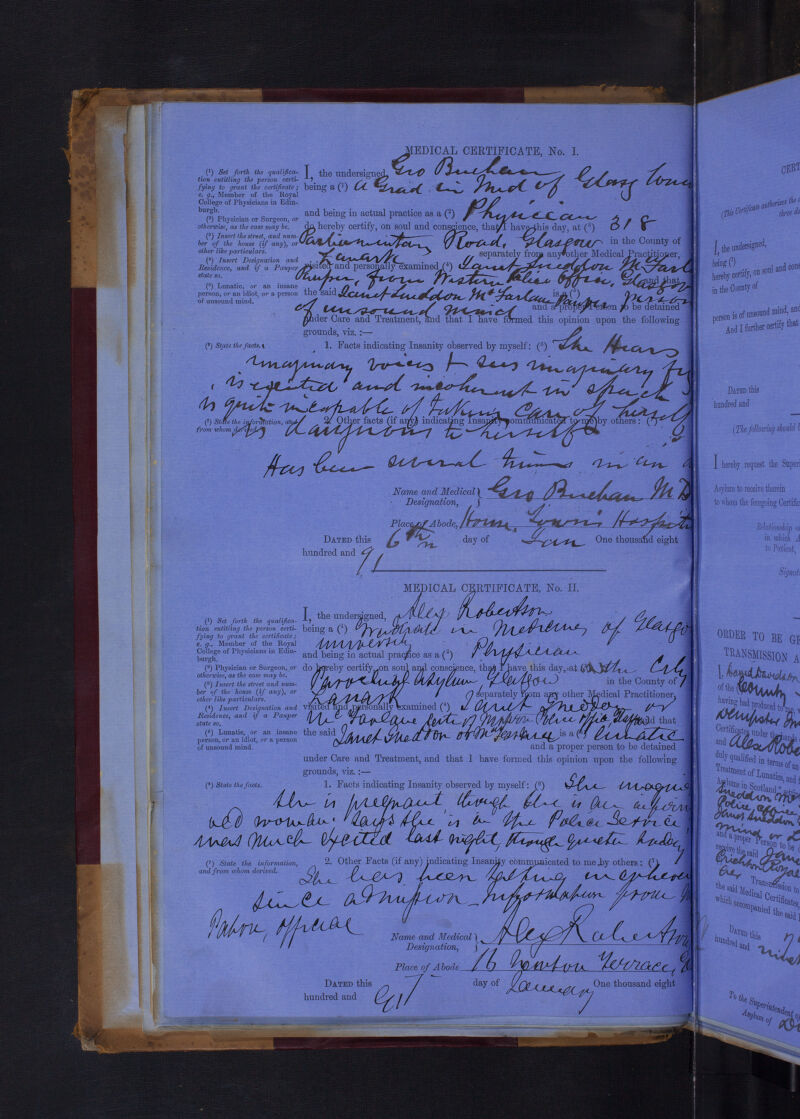 MEDICAL CERTIFICATE, No. I.
(1) Set forth the qualifica-
tion entitling the person certi-
fying to grant the certificate;
e. g., Member of the Royal
College of Physicians in Edin-
burgh.
(2) Physician or Surgeon, or
otherwise, as the case may be.
(3) Insert the street, and num-
ber of the house (if any), or
other like particulars.
(4) Insert Designation and
Residence, and if a Pauper
state so.
(5) Lunatic, or an insane
person, or an idiot, or a person
of unsound mind.
I, the undersigned, Geo Buchan
being a (1) a Grad in Med of Glasg
and being in actual practice as a (2) Physician
do hereby certify, on soul and conscience, that I have this day, at (3) 318
Parliamentary Road, Glasgow in the County of
Lanark separately from any other Medical Practitioner,
visited and personally examined (4) Janet Sneddon or McFarl
Pauper, from Western Police Office, Glasgow and that
the said Janet Sneddon or McFarlane Pauper is a (5) Person
of unsound mind and a proper Person to be detained
under Care and Treatment, and that I have formed this opinion upon the following
grounds, viz. :—
(6) State the facts.
1. Facts indicating Insanity observed by myself: (6) She Hears
imaginary voices & sees imaginary
is excited and incoherent in speech
is quite incapable of taking care of herself
(7) State the information, and
from whom derived.
2. Other facts (if any) indicating Insanity communicated to me by others: (7)
is dangerous to herself
Has been several times in an
Name and Medical Designation, Geo Buchan M B
Place of Abode, House, Town's Hospit
DATED this 6th day of Jan One thousand eight
hundred and 91
MEDICAL CERTIFICATE, No. II.
(1) Set forth the qualifica-
tion entitling the person certi-
fying to grant the certificate;
e. g., Member of the Royal
College of Physicians in Edin-
burgh.
(2) Physician or Surgeon, or
otherwise, as the case may be.
(3) Insert the street and num-
ber of the house (if any), or
other like particulars.
(4) Insert Designation and
Residence, and if a Pauper
state so.
(5) Lunatic, or an insane
person, or an idiot, or a person
of unsound mind.
I, the undersigned, Alex Robertson
being a (1) Graduate in Medicine, of Glasgo
University
and being in actual practice as a (2) Physician
do hereby certify, on soul and conscience, that I have this day, at (3) in the City
Parochial Asylum Glasgow in the County of
Lanark separately from any other Medical Practitioner,
visited and personally examined (4) Janet Sneddon or
McFarlane Police Office and that
the said Janet Sneddon or McFarlane is a (5) lunatic
and a proper person to be detained
under Care and Treatment, and that I have formed this opinion upon the following
grounds, viz. :—
(6) State the facts.
1. Facts indicating Insanity observed by myself: (6) She imagin
she is pregnant though she is an
old woman. Says she is in the Police Service
was much excited last night, though quieter today
(7) State the information,
and from whom derived.
2. Other Facts (if any) indicating Insanity communicated to me by others: (7)
She has been talking incoheren
since admission - information from
Paton, official
Name and Medical Designation, Alex Robertson
Place of Abode 16 Newton Terrace,
DATED this 7 day of January One thousand eight
hundred and 91
CERT
(This Certificate authorizes the
three d
I, the undersigned,
being (1)
hereby certify, on soul and con
in the County of
person is of unsound mind, and
And I further certify that
DATED this
hundred and
(The following should
I hereby request the Superi
Asylum to receive therein
to whom the foregoing Certifica
Relationship or
in which
to Patient,
Signat
ORDER TO BE G
TRANSMISSION A
I, David Davidson
of the County
having had produced to me
Dempster
Certificates under
and Alex Robe
duly qualified in terms of an
Treatment of Lunatics, and
Asylums in Scotland,"
Sneddon or Mc
Police Office
Janet Sneddon
mind or
and a proper Person to be
receive the said Jane
Crichton Royal
her Transmission to
the said Medical Certificates,
which accompanied the said
DATED this 7
hundred and ninet
To the Superintendent of
Asylum of